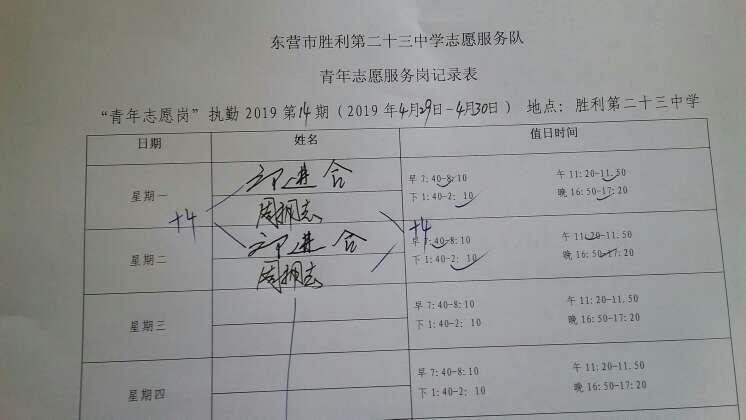 东营市胜利第二十三中学志愿服务队
青年志愿服务岗记录表
“青年志愿岗”执勤 2019 第14期（2019 年4月29日-4月30日） 地点：胜利第二十三中学
日期 姓名 值日时间
星期一
早 7:40-8:10 午 11:20-11.50
下 1:40-2: 10 晚 16:50-17:20
+4 +4
星期二
早 7:40-8:10 午 11:20-11.50
下 1:40-2: 10 晚 16:50-17:20
星期三
早 7:40-8:10 午 11:20-11.50
下 1:40-2: 10 晚 16:50-17:20
星期四
早 7:40-8:10 午 11:20-11.50
下 1:40-2: 10 晚 16:50-17:20